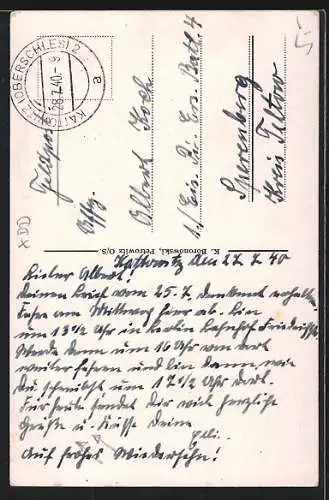 KATTOWITZ (OBERSCHLES) 2
28.7.40-9
a
Feldpost
Uffz.
Albert Koch
1./ Eis. Pi. Ers. Batl. 4
Sperenberg
Kreis Teltow
K. Boronowski, Petrowitz O/S.
Kattowitz den 27.7.40
Lieber Albert!
Deinen Brief vom 25.7. dankend erhalten.
Fahre am Mittwoch hier ab. Bin
um 13½ Uhr in Berlin Bahnhof Friedrichstr.
Werde dann um 16 Uhr von dort
weiter fahren und bin dann, wie
Du schreibst um 17½ Uhr dort.
Für heute sendet Dir viel herzliche
Grüße u. Küsse Deine
Elli.
Auf frohes Wiedersehn!